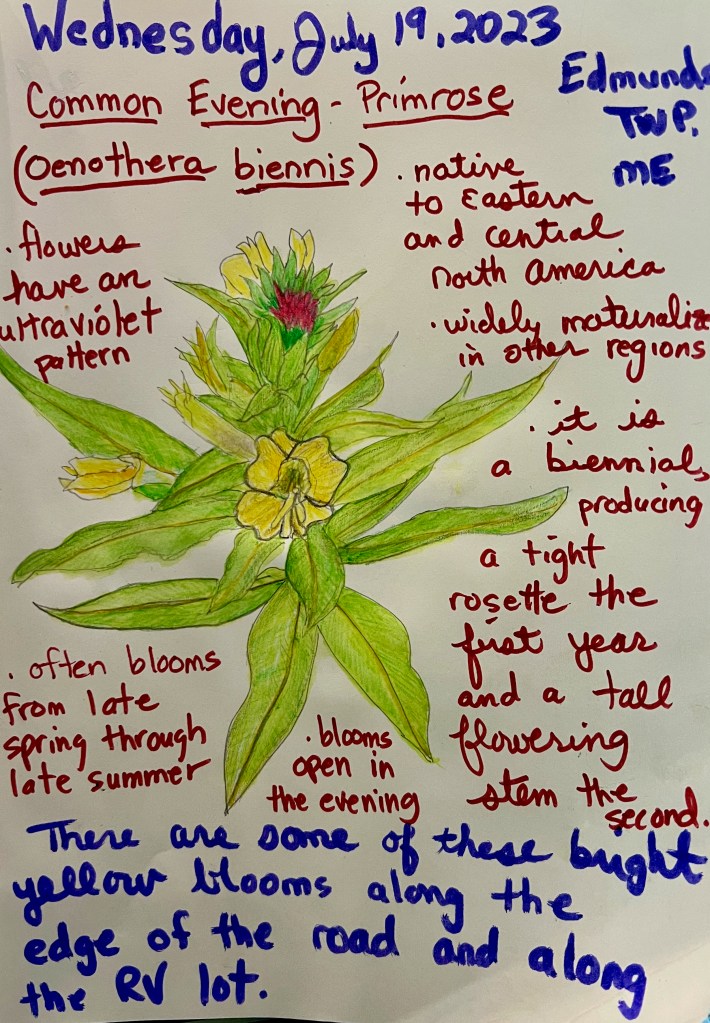 Wednesday, July 19, 2023
Edmunds
TWP.
ME
Common Evening-Primrose
(Oenothera biennis)
. native
to Eastern
and central
north America
. widely naturaliz
in other regions
. flowers
have an
ultraviolet
pattern
. it is
a biennial,
producing
a tight
rosette the
first year
and a tall
flowering
stem the
second.
. often blooms
from late
spring through
late summer
. blooms
open in
the evening
There are some of these bright
yellow blooms along the
edge of the road and along
the RV lot.